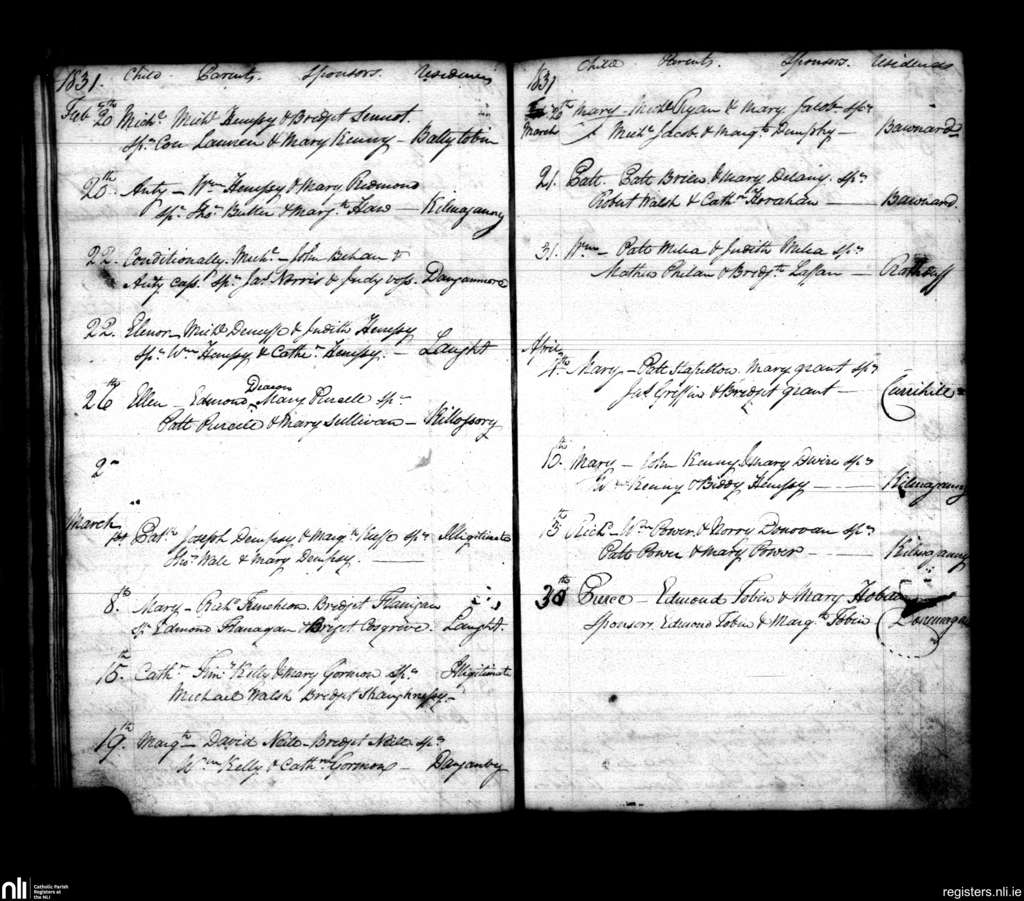 1831. Child. Parents. Sponsors. Residences
Feb 20th Michl. Michl Hempsy & Bridget Sinnot.
sprs Con Laurien & Mary Kenny – Ballytobin
20th. Anty – Wm Hempsy & Mary Redmond
sprs Thos Butler & Margt Haw – Kilmaganny
22. Conditionally. Michl – John Behan &
Anty sprs Jas Norris & Judy Danganmore
22. Elenor – Michl & Judith Hempsy
sprs Wm Hempsy & Cathen Hempsy. – Laught
Deacon
26th Ellen – Edmond Mary Pursell sprs
Patt Purcell & Mary Sullivan – Killossory
2
March
1st Patk. Joseph Dempsy & Margt sprs Illigitimate
Thos Wale & Mary Dempsy.
8th Mary – Richd Bridget Flanigan
sprs Edmond Flanagan & Bridget Cosgrave. Laught.
15th. Cathn Timy Kelly & Mary Gormon sprs Illigitimate
Michael Walsh Bridget Shaughnessy –
19th. Margt – David Neile – Bridget Neile sprs
Wm Kelly & Cathn Gormon –
1831 Child Parents. Sponsors. Residences
20th Mary – Michl Ryan & Mary Jacob sprs
March & Michl Jacob & Margt Dunphy – Bawnard
21. Patt. Patt Brien & Mary Delany. sprs
Robert Walsh & Cathn Horahan – Bawnard.
31. Wm – Patt Melia & Judith Melia sprs
Mathew Phelan & Bridgt Laffan – Rathduff
April
4th Mary – Patt Hapelton Mary Grant sprs
Jas Griffin & Bridget Grant – Currihill
10th. Mary – John Kenny & Mary Dwire sprs
Kenny & Biddy Hempsy – Kilmaganny
15th Richd – Wm Power & Norry Donovan sprs
Patt Power & Mary Power – Kilmaganny
30th Pierce – Edmond Tobin & Mary Hoban
Sponsors. Edmond Tobin & Margt Tobin
nli Catholic Parish Registers at the NLI
registers.nli.ie